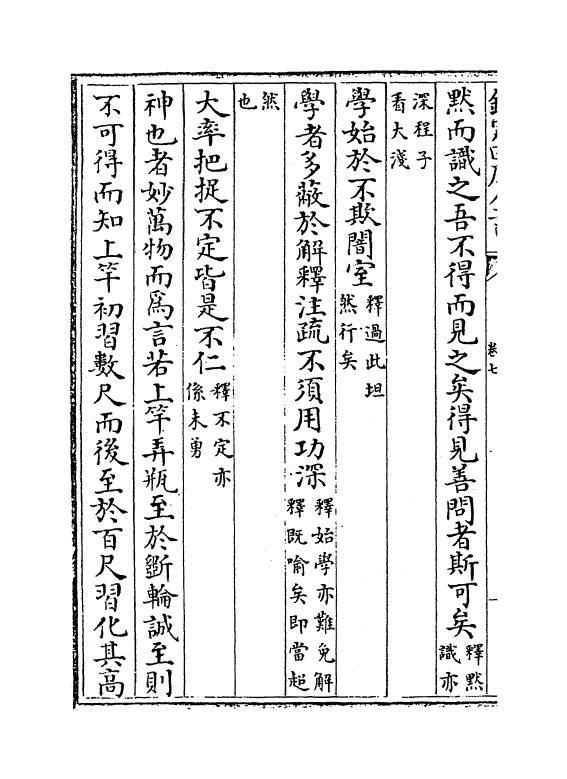 欽定四庫全書
卷七
默而識之吾不得而見之矣得見善問者斯可矣釋默識亦
深程子看大淺
學始於不欺闇室釋過此坦然行矣
學者多蔽於解釋注疏不須用功深釋始學亦難免解釋既喻矣即當超
然也
大率把捉不定皆是不仁釋不定亦係未勇
神也者妙萬物而爲言若上竿弄瓶至於斵輪誠至則
不可得而知上竿初習數尺而後至於百尺習化其高